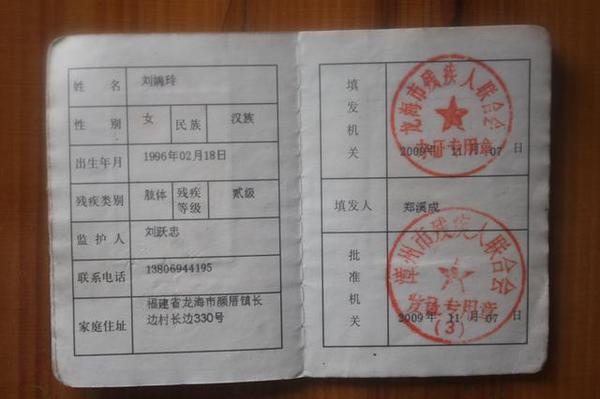 姓 名 刘婉玲
性 别 女 民族 汉族
出生年月 1996年02月18日
残疾类别 肢体 残疾等级 贰级
监护人 刘跃忠
联系电话 13806944195
家庭住址 福建省龙海市颜厝镇长
边村长边330号
填发机关 龙海市残疾人联合会
办证专用章
2009年 11月 07日
填发人 郑溪成
批准机关 漳州市残疾人联合会
发证专用章
(3)
2009年 11月 07日